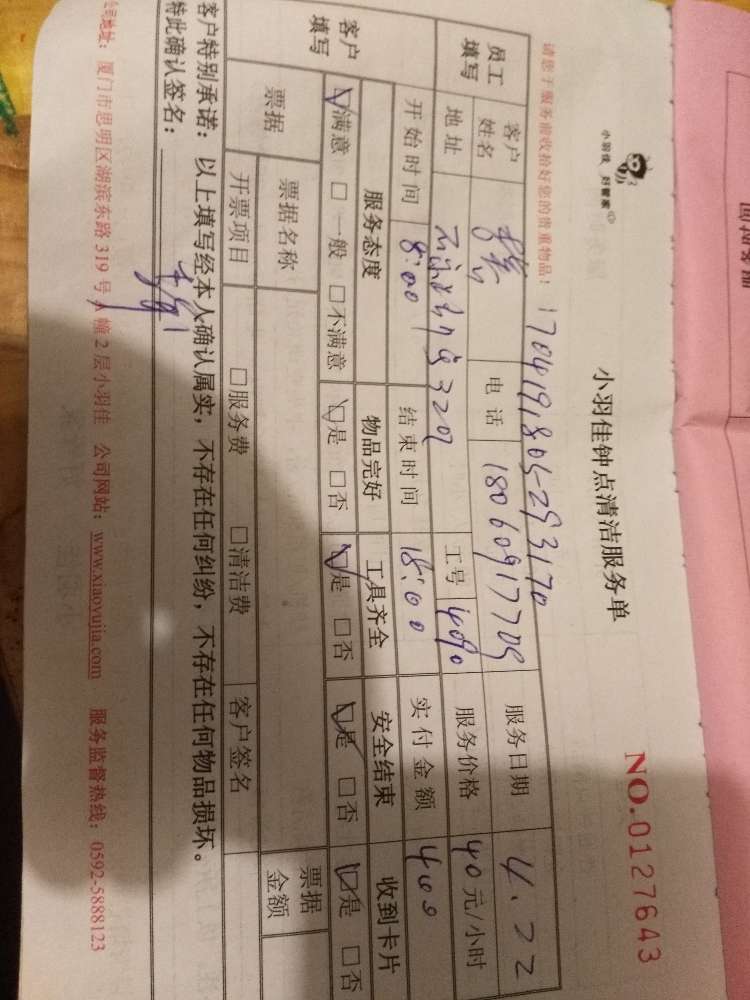 小羽佳 好管家
小羽佳钟点清洁服务单
NO.0127643
请您于服务前收拾好您的贵重物品！
1704191805293170
员工填写 客户姓名 电话 18060917709 服务日期 4.22
地址 320 工号 4090 服务价格 40 元/小时
开始时间 8:00 结束时间 18:00 实付金额 400
客户填写 服务态度 物品完好 工具齐全 安全结束 收到卡片
☑满意 □一般 □不满意 ☑是 □否 ☑是 □否 ☑是 □否 ☑是 □否
票据 票据名称 票据金额
开票项目 □服务费 □清洁费 客户签名
客户特别承诺：以上填写经本人确认属实，不存在任何纠纷，不存在任何物品损坏。
特此确认签名：
公司地址：厦门市思明区湖滨东路 319 号 A 幢 2 层小羽佳 公司网站：www.xiaoyujia.com 服务监督热线：0592-5888123